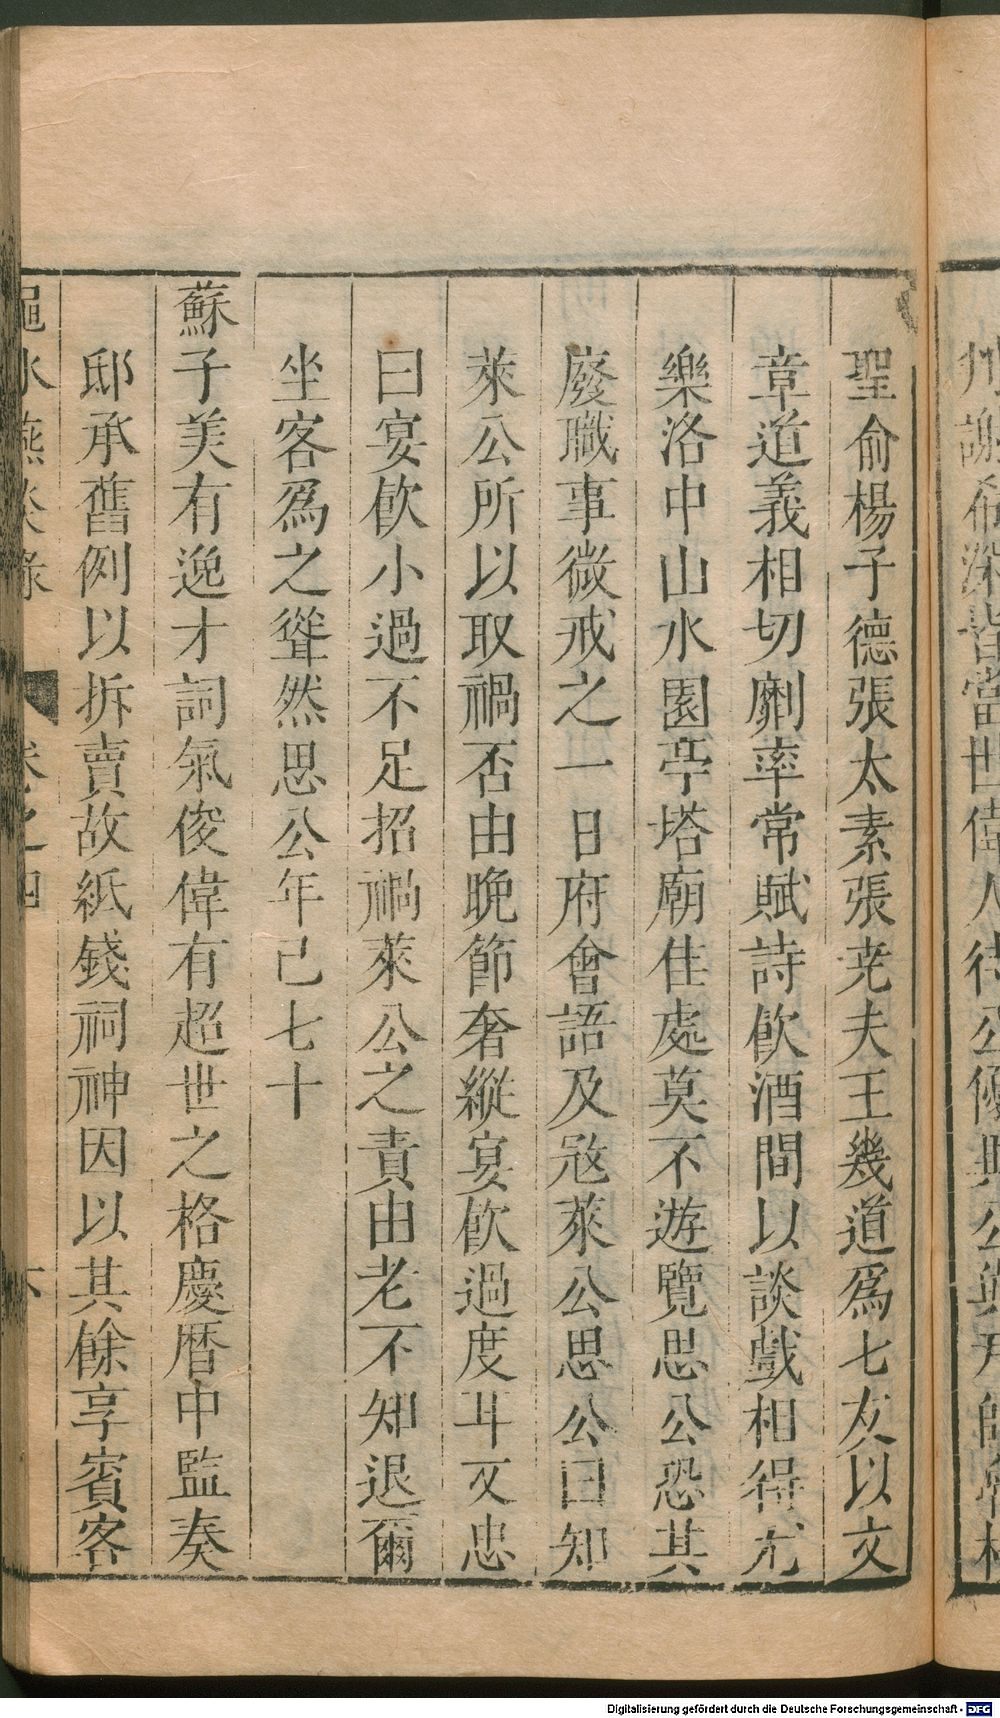 聖俞楊子德張太素張尭夫王幾道爲七友以文
章道義相切劘率常賦詩飮酒間以談戲相得尤
樂洛中山水園亭塔廟佳處莫不遊覽思公恐其
廢職事微戒之一日府會語及宼萊公思公曰知
萊公所以取禍否由晩節奢縱宴飮過度耳文忠
曰宴飮小過不足招禍萊公之責由老不知退爾
坐客爲之聳然思公年已七十
蘇子美有逸才詞氣俊偉有超世之格慶暦中監奏
邸承舊例以拆賣故紙錢祠神因以其餘享賓客
澠水燕談錄 卷之四 六
Digitalisierung gefördert durch die Deutsche Forschungsgemeinschaft - DFG